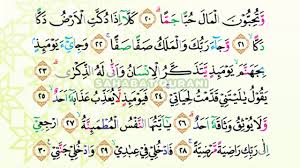 وَتُحِبُّونَ الْمَالَ حُبًّا جَمًّا ۝٢٠ كَلَّا إِذَا دُكَّتِ الْأَرْضُ دَكًّا
دَكًّا ۝٢١ وَجَاءَ رَبُّكَ وَالْمَلَكُ صَفًّا صَفًّا ۝٢٢ وَجِايْءَ يَوْمَئِذٍ
بِجَهَنَّمَ يَوْمَئِذٍ يَتَذَكَّرُ الْإِنسَانُ وَأَنَّى لَهُ الذِّكْرَى ۝٢٣
يَقُولُ يَالَيْتَنِي قَدَّمْتُ لِحَيَاتِي ۝٢٤ فَيَوْمَئِذٍ لَا يُعَذِّبُ عَذَابَهُ أَحَدٌ ۝٢٥
وَلَا يُوثِقُ وَثَاقَهُ أَحَدٌ ۝٢٦ يَاأَيَّتُهَا النَّفْسُ الْمُطْمَئِنَّةُ ۝٢٧ ارْجِعِي
إِلَى رَبِّكِ رَاضِيَةً مَّرْضِيَّةً ۝٢٨ فَادْخُلِي فِي عِبَادِي ۝٢٩ وَادْخُلِي جَنَّتِي ۝٣٠